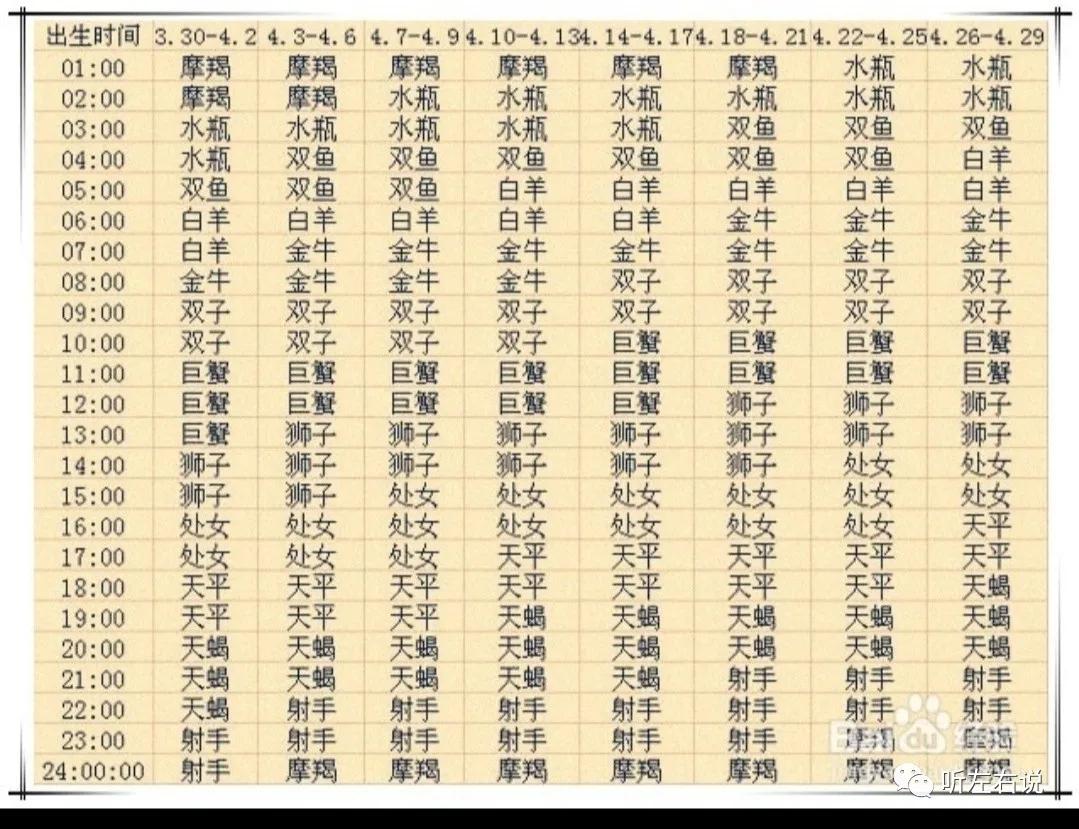 出生时间 3.30-4.2 4.3-4.6 4.7-4.9 4.10-4.13 4.14-4.17 4.18-4.21 4.22-4.25 4.26-4.29
01:00 摩羯 摩羯 摩羯 摩羯 摩羯 摩羯 水瓶 水瓶
02:00 摩羯 摩羯 水瓶 水瓶 水瓶 水瓶 水瓶 水瓶
03:00 水瓶 水瓶 水瓶 水瓶 水瓶 双鱼 双鱼 双鱼
04:00 水瓶 双鱼 双鱼 双鱼 双鱼 双鱼 双鱼 白羊
05:00 双鱼 双鱼 双鱼 白羊 白羊 白羊 白羊 白羊
06:00 白羊 白羊 白羊 白羊 白羊 金牛 金牛 金牛
07:00 白羊 金牛 金牛 金牛 金牛 金牛 金牛 金牛
08:00 金牛 金牛 金牛 金牛 双子 双子 双子 双子
09:00 双子 双子 双子 双子 双子 双子 双子 双子
10:00 双子 双子 双子 双子 巨蟹 巨蟹 巨蟹 巨蟹
11:00 巨蟹 巨蟹 巨蟹 巨蟹 巨蟹 巨蟹 巨蟹 巨蟹
12:00 巨蟹 巨蟹 巨蟹 巨蟹 巨蟹 狮子 狮子 狮子
13:00 巨蟹 狮子 狮子 狮子 狮子 狮子 狮子 狮子
14:00 狮子 狮子 狮子 狮子 狮子 狮子 处女 处女
15:00 狮子 狮子 处女 处女 处女 处女 处女 处女
16:00 处女 处女 处女 处女 处女 处女 处女 天平
17:00 处女 处女 处女 天平 天平 天平 天平 天平
18:00 天平 天平 天平 天平 天平 天平 天平 天蝎
19:00 天平 天平 天平 天蝎 天蝎 天蝎 天蝎 天蝎
20:00 天蝎 天蝎 天蝎 天蝎 天蝎 天蝎 天蝎 天蝎
21:00 天蝎 天蝎 天蝎 天蝎 天蝎 射手 射手 射手
22:00 天蝎 射手 射手 射手 射手 射手 射手 射手
23:00 射手 射手 射手 射手 射手 射手 摩羯 摩羯
24:00:00 射手 摩羯 摩羯 摩羯 摩羯 摩羯 摩羯 摩羯
Bai du 经验
听左右说